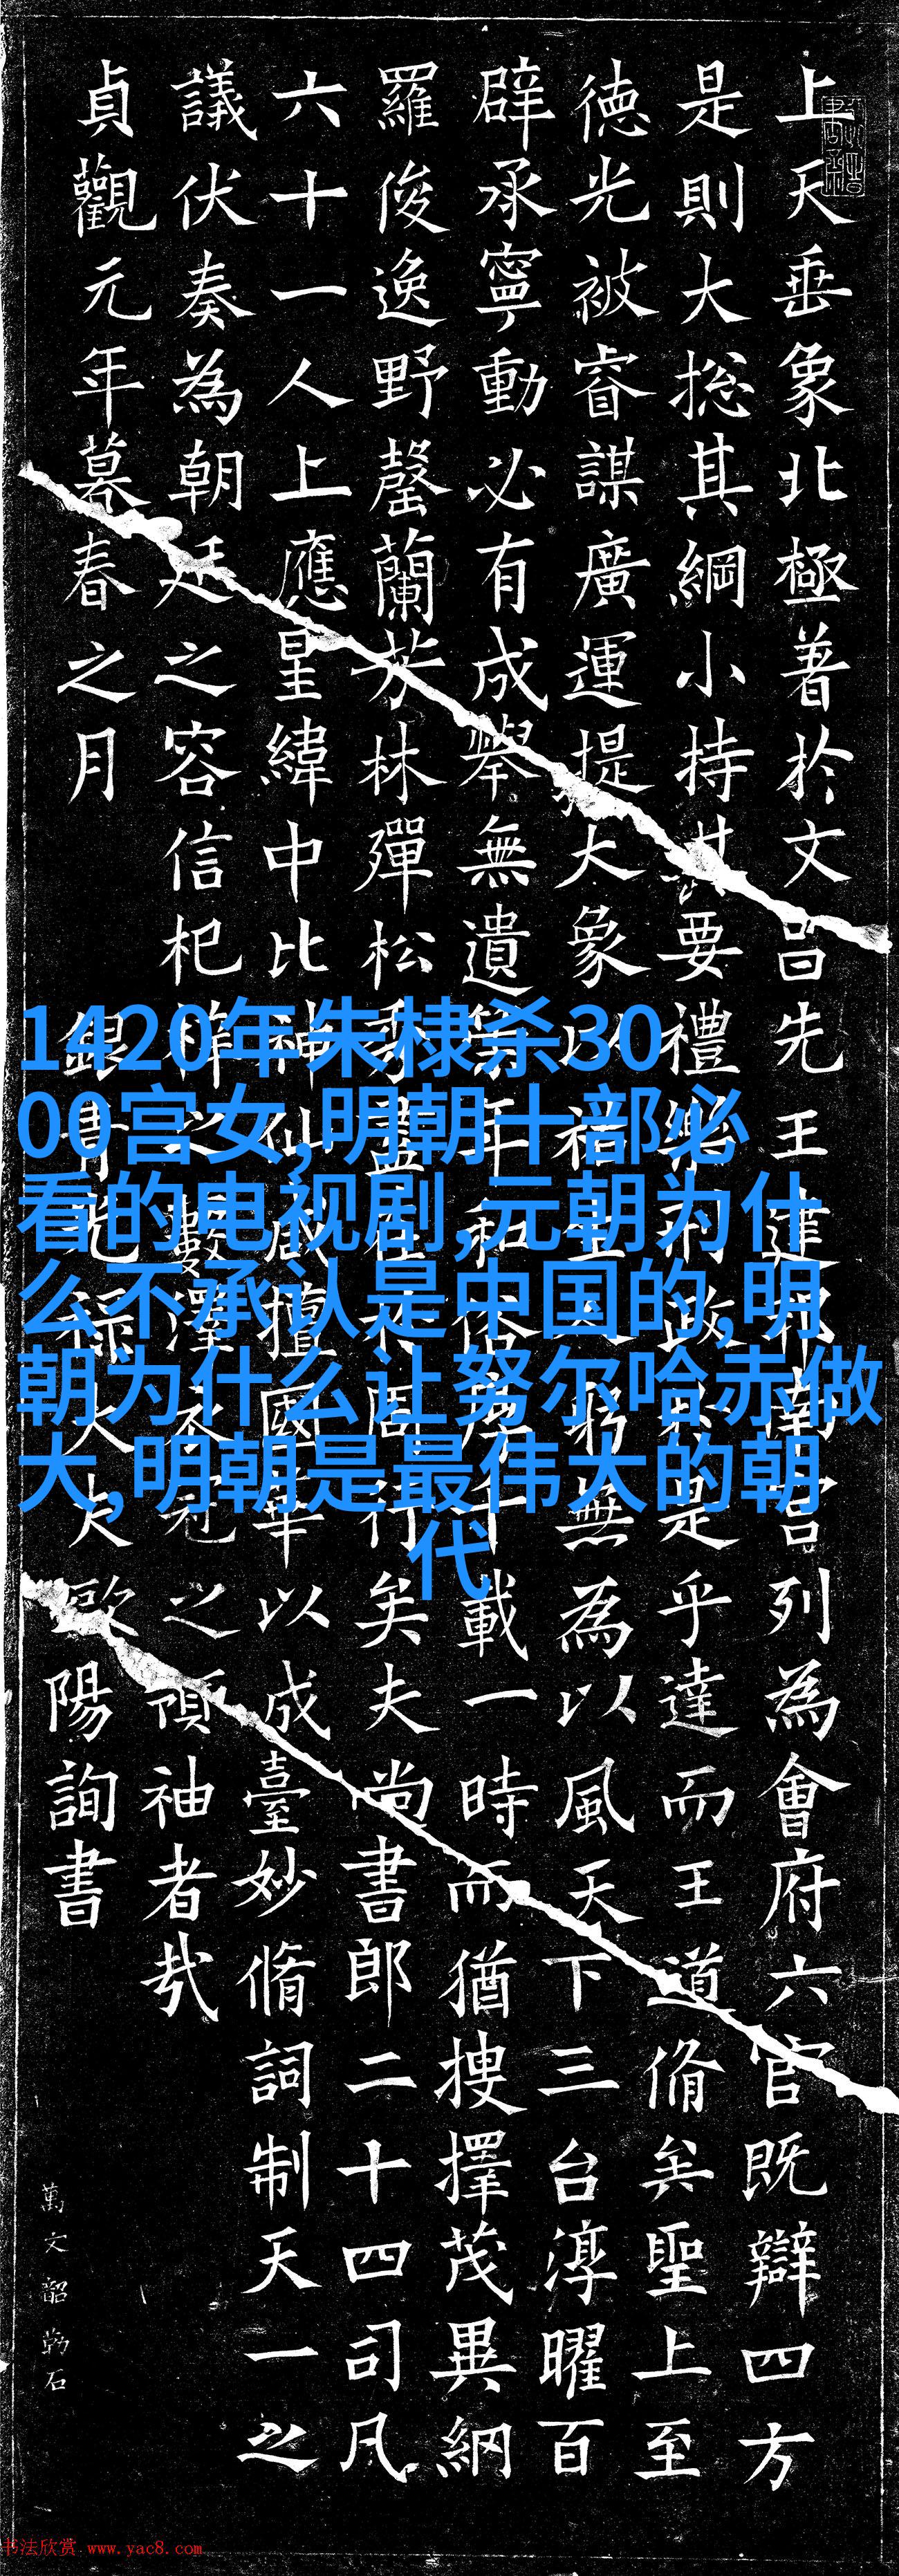 上天垂象北極著於文昌先王建邦南宮列為會府六官既辯四方
是則大捴其綱小持其要禮樂刑政於是乎達而王道脩矣聖上至
徳光被睿謀廣運提大象以祐生人躬無為以風天下三台淳曜百
辟承寧動必有成舉無遺策年和俗厚千載一時而猶搜擇茂異網
羅俊逸野罄蘭芳林彈松秀盡在周行矣夫尚書郎二十四司凡
六十一人上應星緯中比神仙咸擅國華以成臺妙脩詞制天一之
議伏奏為朝廷之容信杞梓之藪澤衣冠之領袖者哉
貞觀元年暮春之月 銀青光祿大夫歐陽詢書
萬文韶勒石
1420年朱棣杀30
00宫女,明朝十部必
看的电视剧,元朝为什
么不承认是中国的,明
朝为什么让努尔哈赤做
大,明朝是最伟大的朝
代
书法欣赏 www.yac8.com